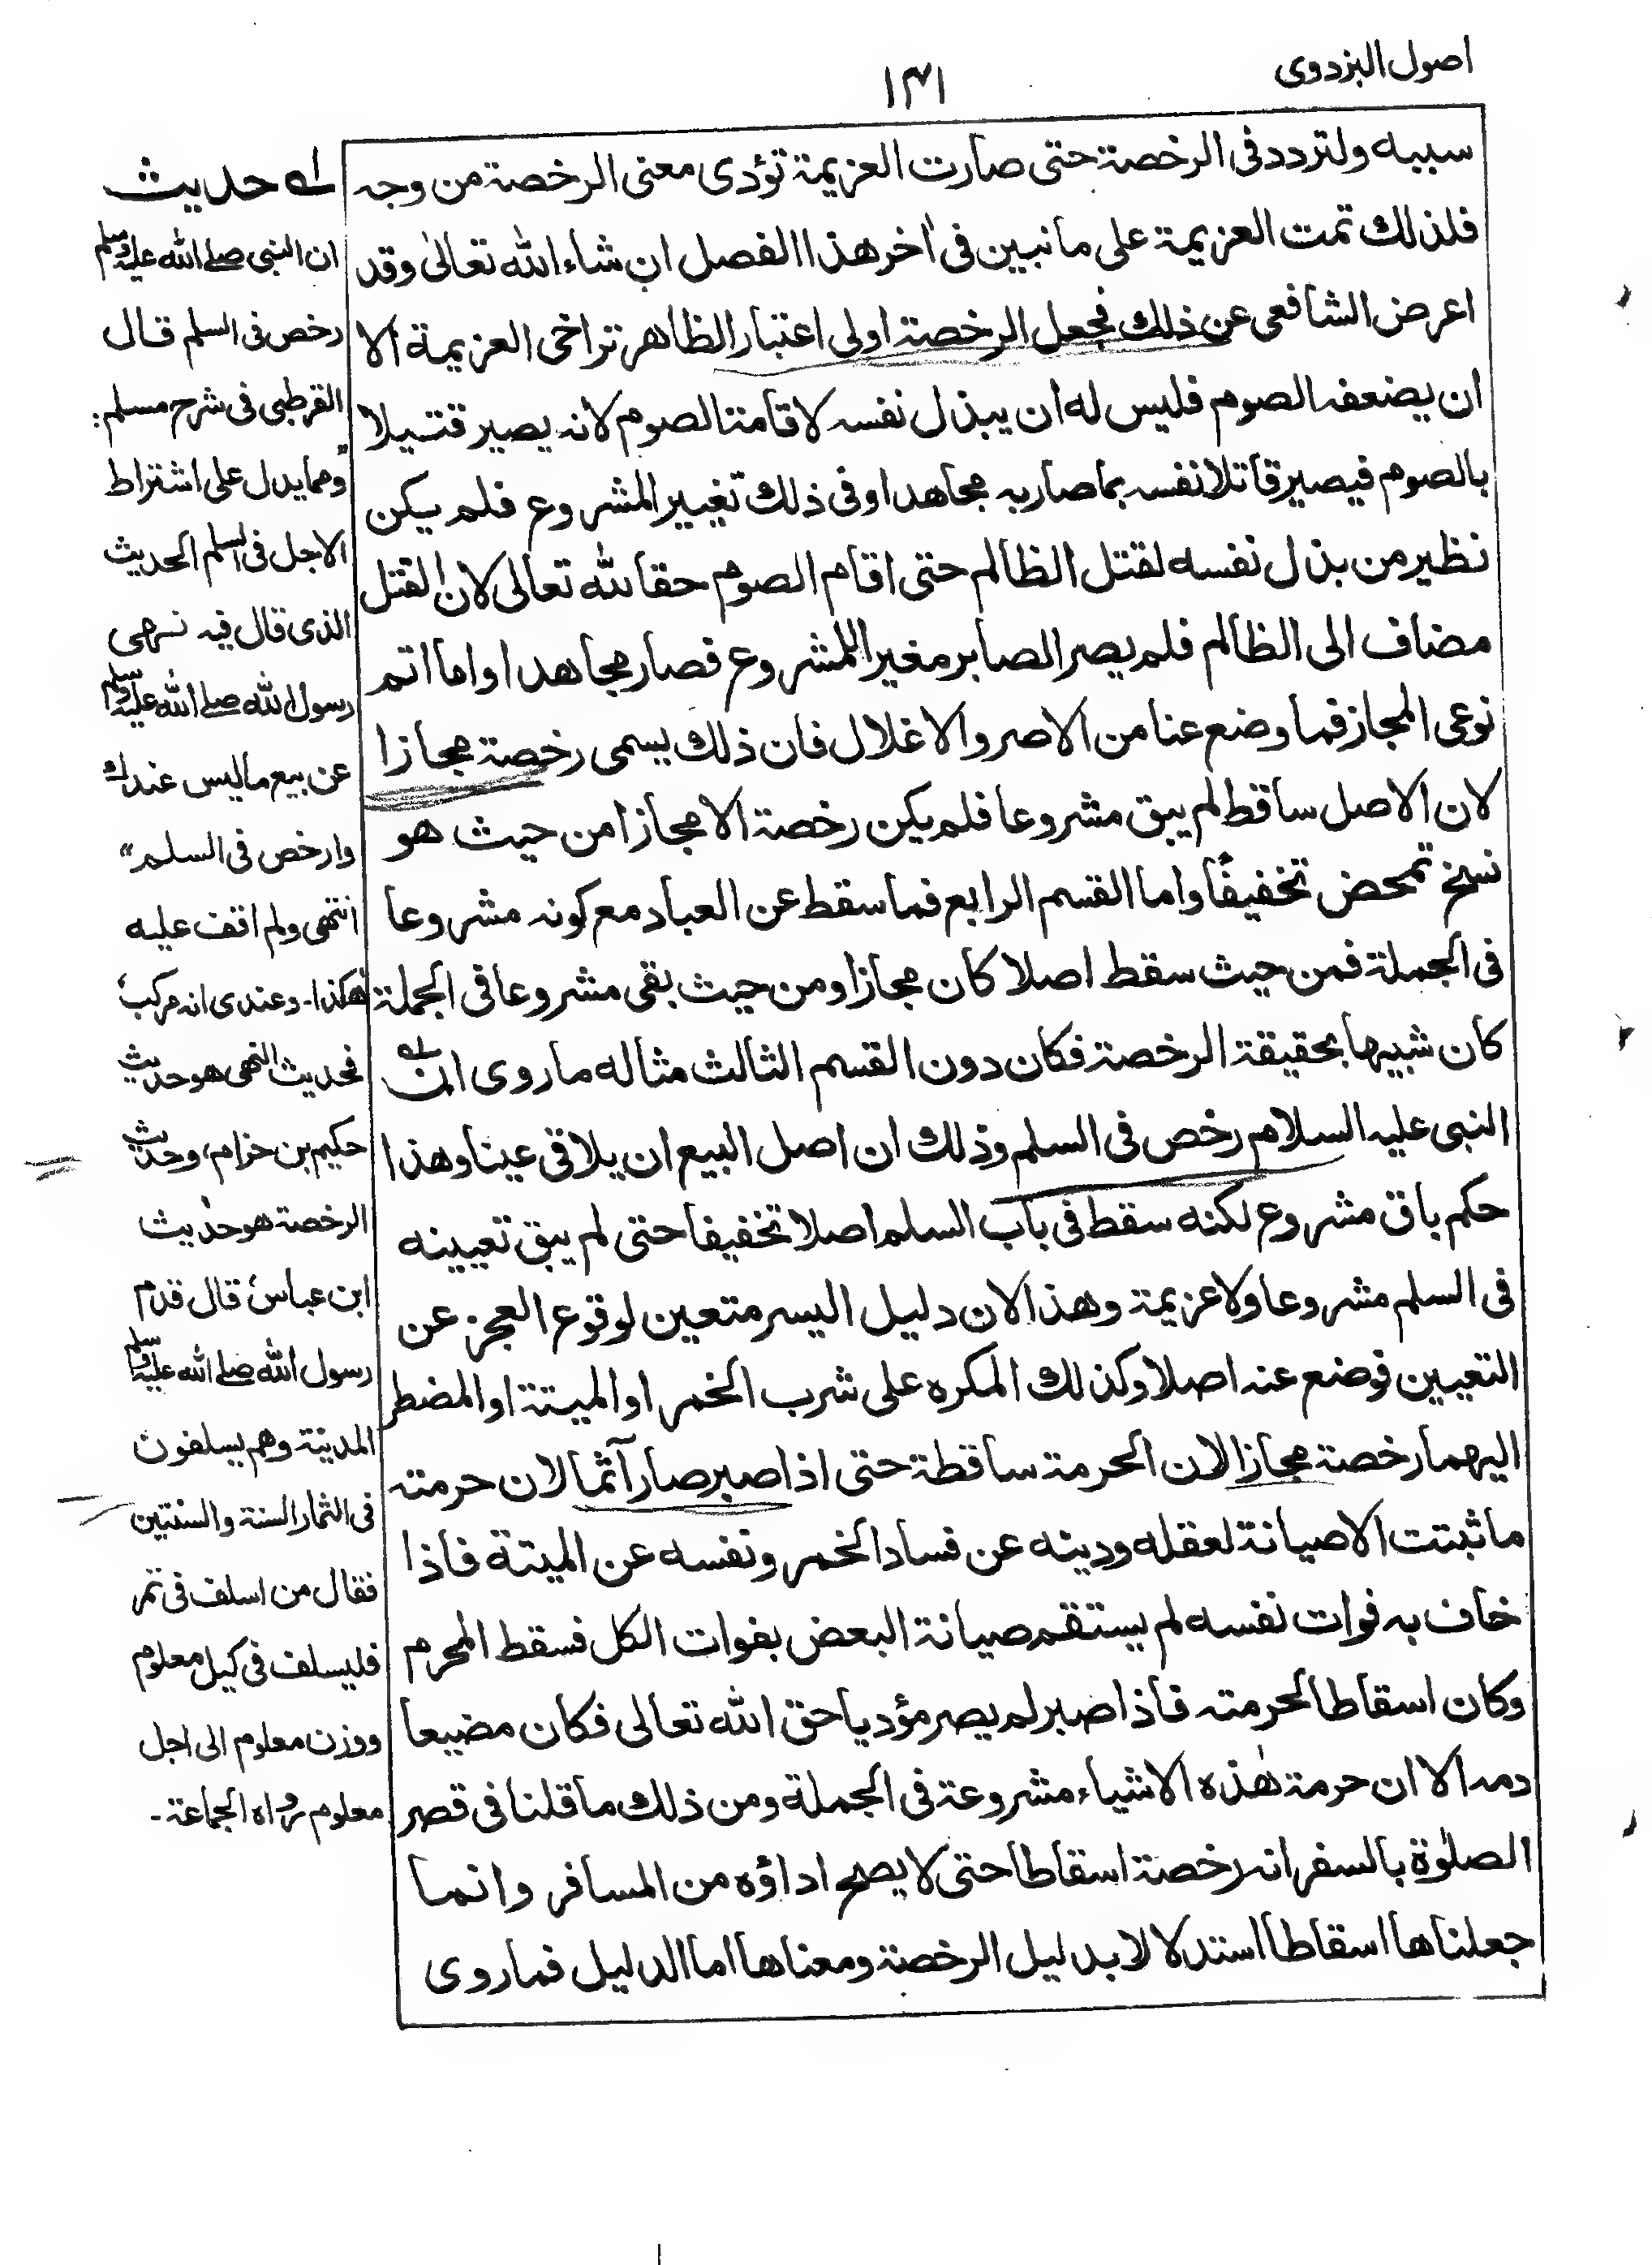 اصول البزدوی
۱۴۱
سببه ولتردد فی الرخصة حتی صارت العزیمة تؤدی معنی الرخصة من وجه
فلذلك تمت العزیمة علی ما نبین فی اٰخر هذا الفصل ان شاء الله تعالیٰ وقد
اعرض الشافعی عن ذلك فجعل الرخصة اولی اعتبار الظاهر تراخی العزیمة الا
ان یضعفه الصوم فلیس له ان یبذل نفسه لاقامة الصوم لانه یصیر قتیلا
بالصوم فیصیر قاتلا نفسه بما صار به مجاهدا وفی ذلك تغییر المشروع فلم یکن
نظیر من بذل نفسه لقتل الظالم حتی اقام الصوم حقا لله تعالی لان القتل
مضاف الی الظالم فلم یصر الصابر مغیرا للمشروع فصار مجاهدا واما اتم
نوعی المجاز فما وضع عنا من الاصر والاغلال فان ذلك یسمی رخصة مجازا
لان الاصل ساقط لم یبق مشروعا فلم یکن رخصة الا مجازا من حیث هو
نسخ تمحض تخفیفًا واما القسم الرابع فما سقط عن العباد مع کونه مشروعا
فی الجملة فمن حیث سقط اصلا کان مجازا ومن حیث بقی مشروعا فی الجملة
کان شبیها بحقیقة الرخصة فکان دون القسم الثالث مثاله ما روی ان
النبی علیه السلام رخص فی السلم وذلك ان اصل البیع ان یلاقی عینا وهذا
حکم باق مشروع لکنه سقط فی باب السلم اصلا تخفیفا حتی لم یبق تعیینه
فی السلم مشروعا ولا عزیمة وهذا لان دلیل الیسر متعین لوقوع العجز عن
التعیین فوضع عنه اصلا وکذلك المکره علی شرب الخمر او المیتة او المضطر
الیهما رخصة مجازا لان الحرمة ساقطة حتی اذا صبر صار آثما لان حرمته
ما ثبتت الا صیانة لعقله ودینه عن فساد الخمر ونفسه عن المیتة فاذا
خاف به فوات نفسه لم یستقم صیانة البعض بفوات الکل فسقط المحرم
وکان اسقاطا لحرمته فاذا صبر لم یصر مؤدیا حق الله تعالی فکان مضیعا
دمه الا ان حرمة هٰذه الاشیاء مشروعة فی الجملة ومن ذلك ما قلنا فی قصر
الصلوٰة بالسفر انه رخصة اسقاطا حتی لا یصح اداؤه من المسافر وانما
جعلناها اسقاطا استدلالا بدلیل الرخصة ومعناها اما الدلیل فما روی
لے حدیث
ان النبی صلے الله علیه وسلم
رخص فی السلم قال
القرطبی فی شرح مسلم:
"ومما یدل علی اشتراط
الاجل فی السلم الحدیث
الذی قال فیه نهی
رسول الله صلے الله علیه وسلم
عن بیع ما لیس عندك
وارخص فی السلم"
انتهی ولم اقف علیه
هٰکذا۔ وعندی انه مرکبٌ
فحدیث النهی هو حدیث
حکیم بن حزام، وحدیث
الرخصة هو حدیث
ابن عباسؓ قال قدم
رسول الله صلے الله علیه وسلم
المدینة وهم یسلفون
فی الثمار السنة والسنتین
فقال من اسلف فی تمر
فلیسلف فی کیل معلوم
ووزن معلوم الی اجل
معلوم رواه الجماعة۔